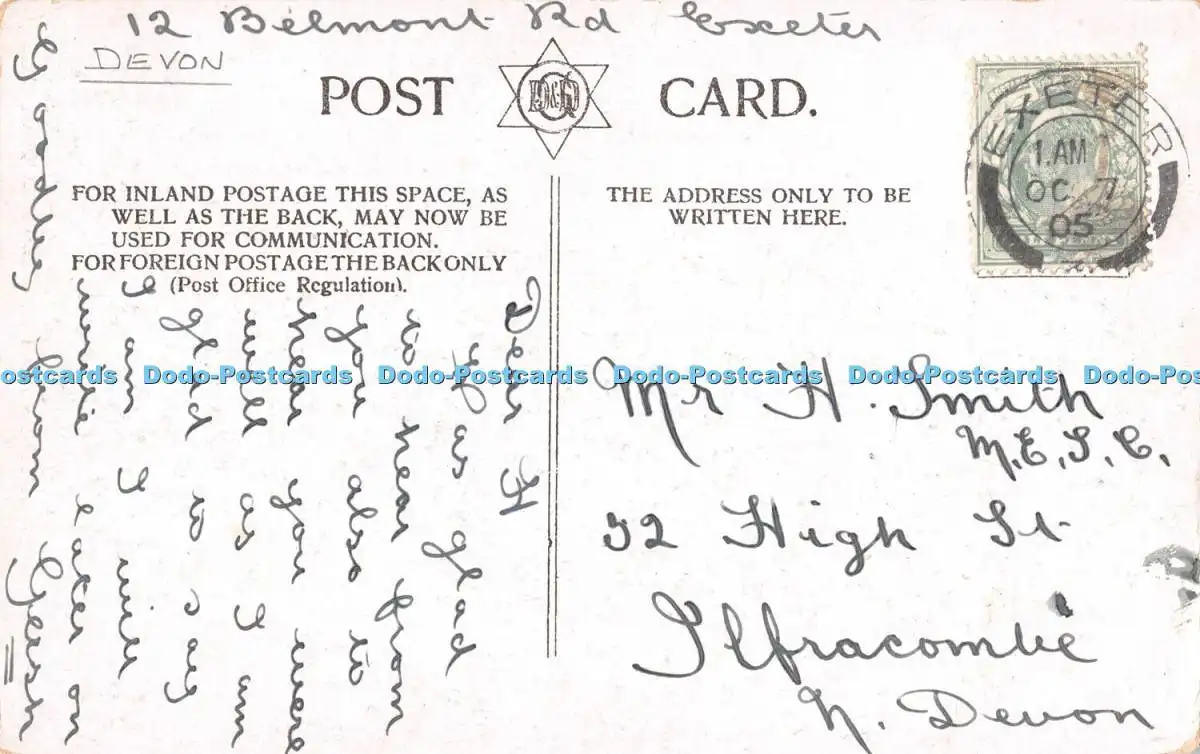 12 Belmont Rd Exeter
DEVON
POST CARD.
PD&GC
EXETER
1. AM
OC 7
05
FOR INLAND POSTAGE THIS SPACE, AS
WELL AS THE BACK, MAY NOW BE
USED FOR COMMUNICATION.
FOR FOREIGN POSTAGE THE BACK ONLY
(Post Office Regulation).
THE ADDRESS ONLY TO BE
WRITTEN HERE.
Dear H
as glad
to hear from
you also to
hear you were
well as I am
glad to say
I am I will
write later on
from
Mr H. Smith
M.E.S.C.
52 High St
Ilfracombe
N. Devon
ostcards Dodo-Postcards Dodo-Postcards Dodo-Postcards Dodo-Postcards Dodo-Pos